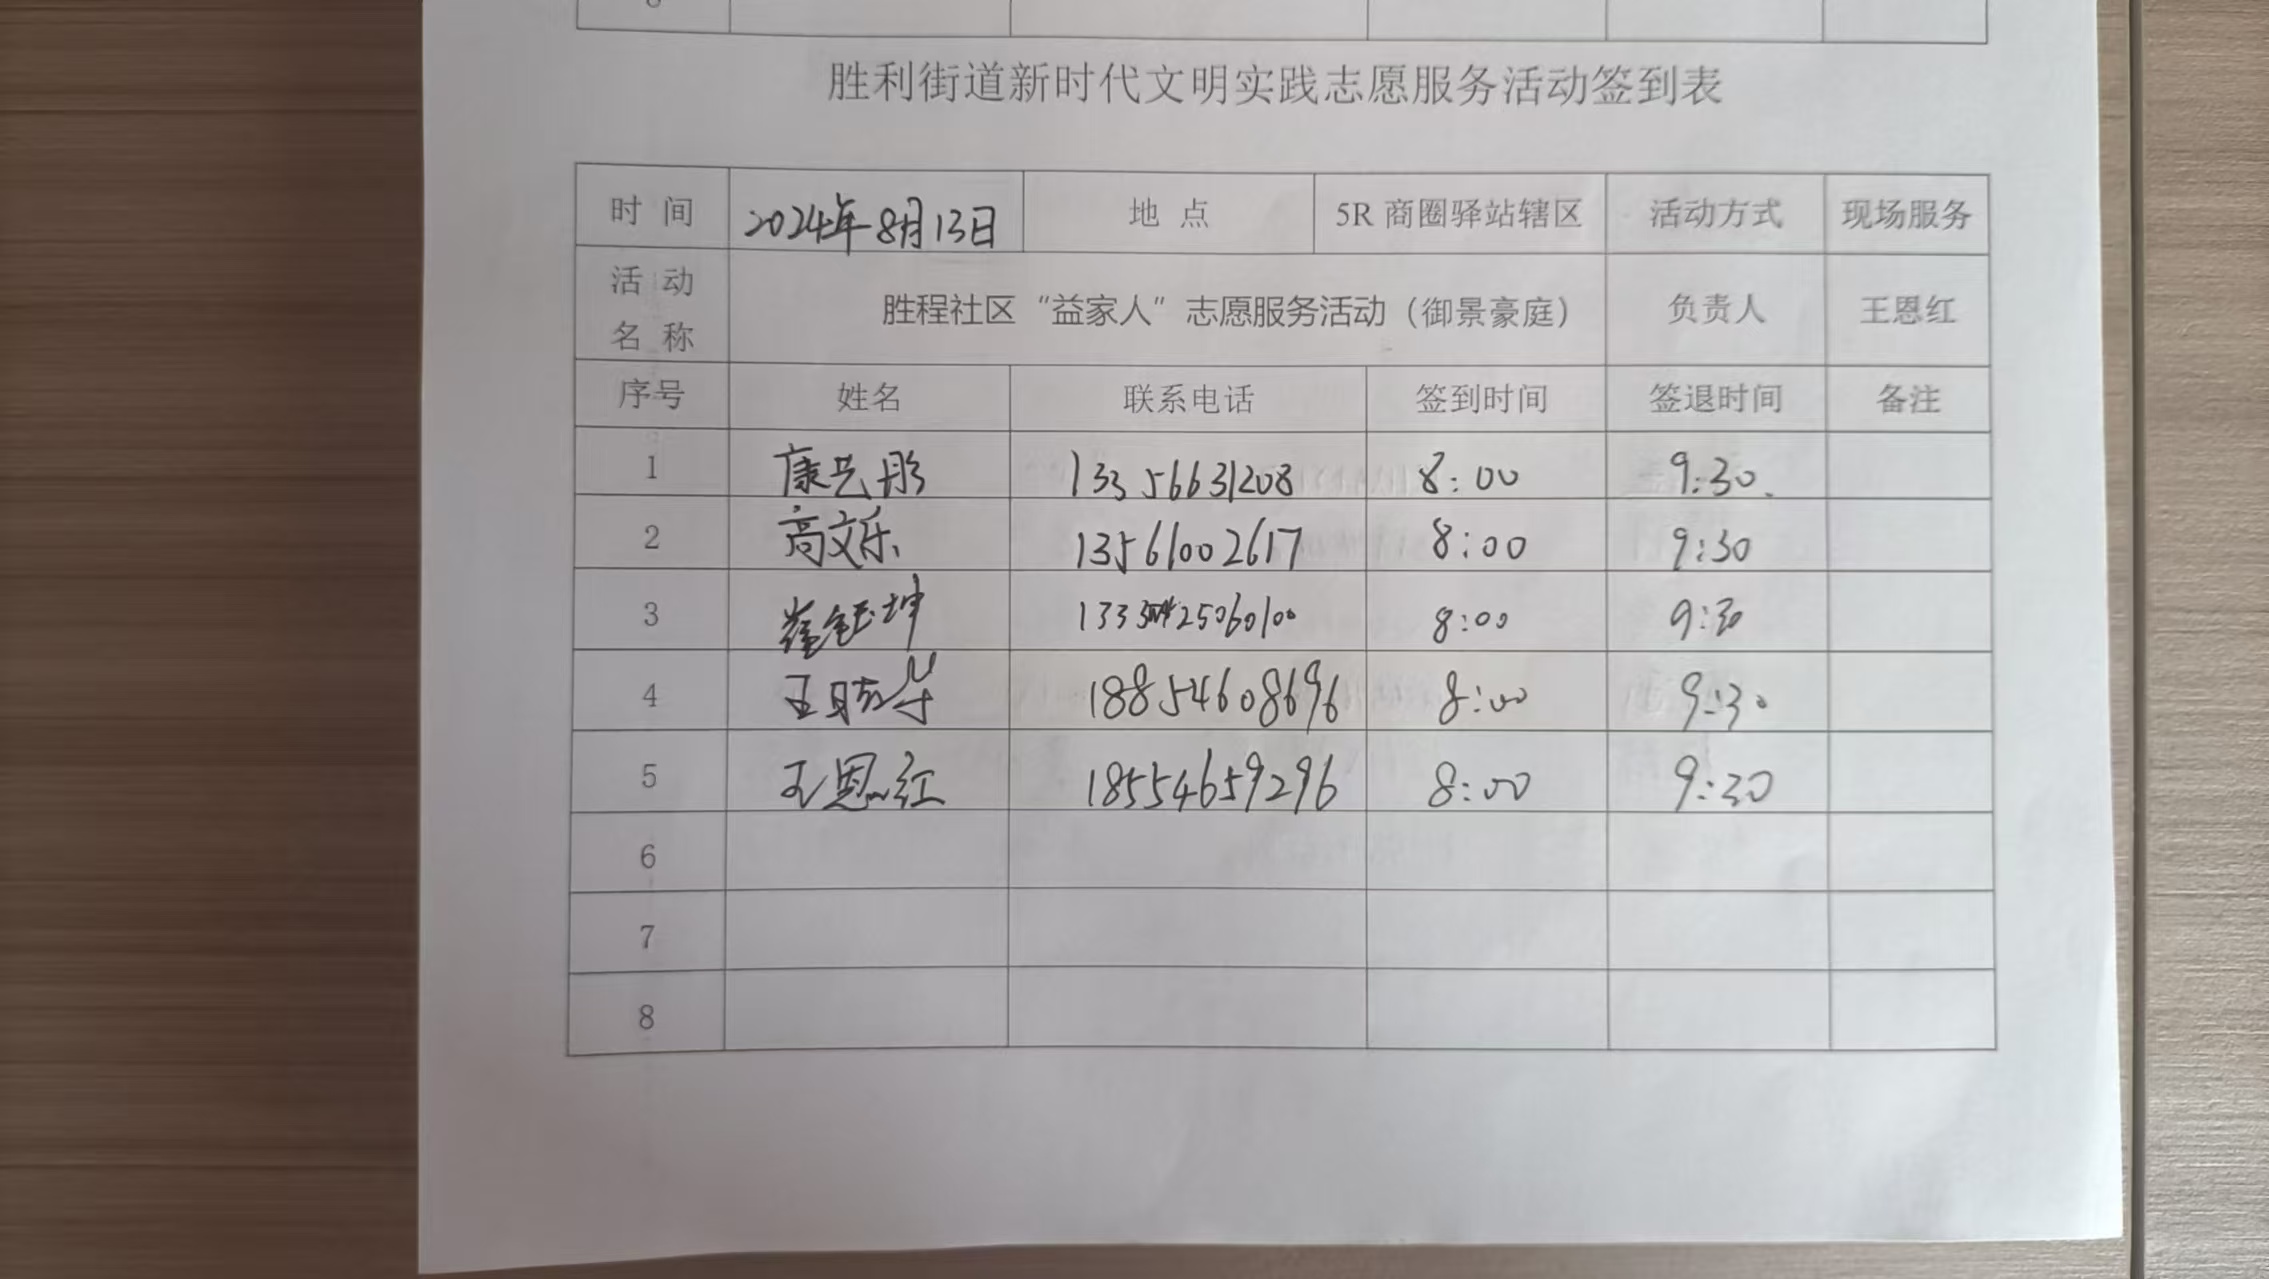 8
胜利街道新时代文明实践志愿服务活动签到表
时 间 2024年8月13日 地 点 5R 商圈驿站辖区 活动方式 现场服务
活 动 名 称 胜程社区“益家人”志愿服务活动（御景豪庭） 负责人 王恩红
序号 姓名 联系电话 签到时间 签退时间 备注
1 康艺彤 13356631208 8:00 9:30.
2 高文乐 13561002617 8:00 9:30
3 坤 8:00 9:30
4 王 18854608696 8:00 9:30
5 王恩红 18554659296 8:00 9:30
6
7
8